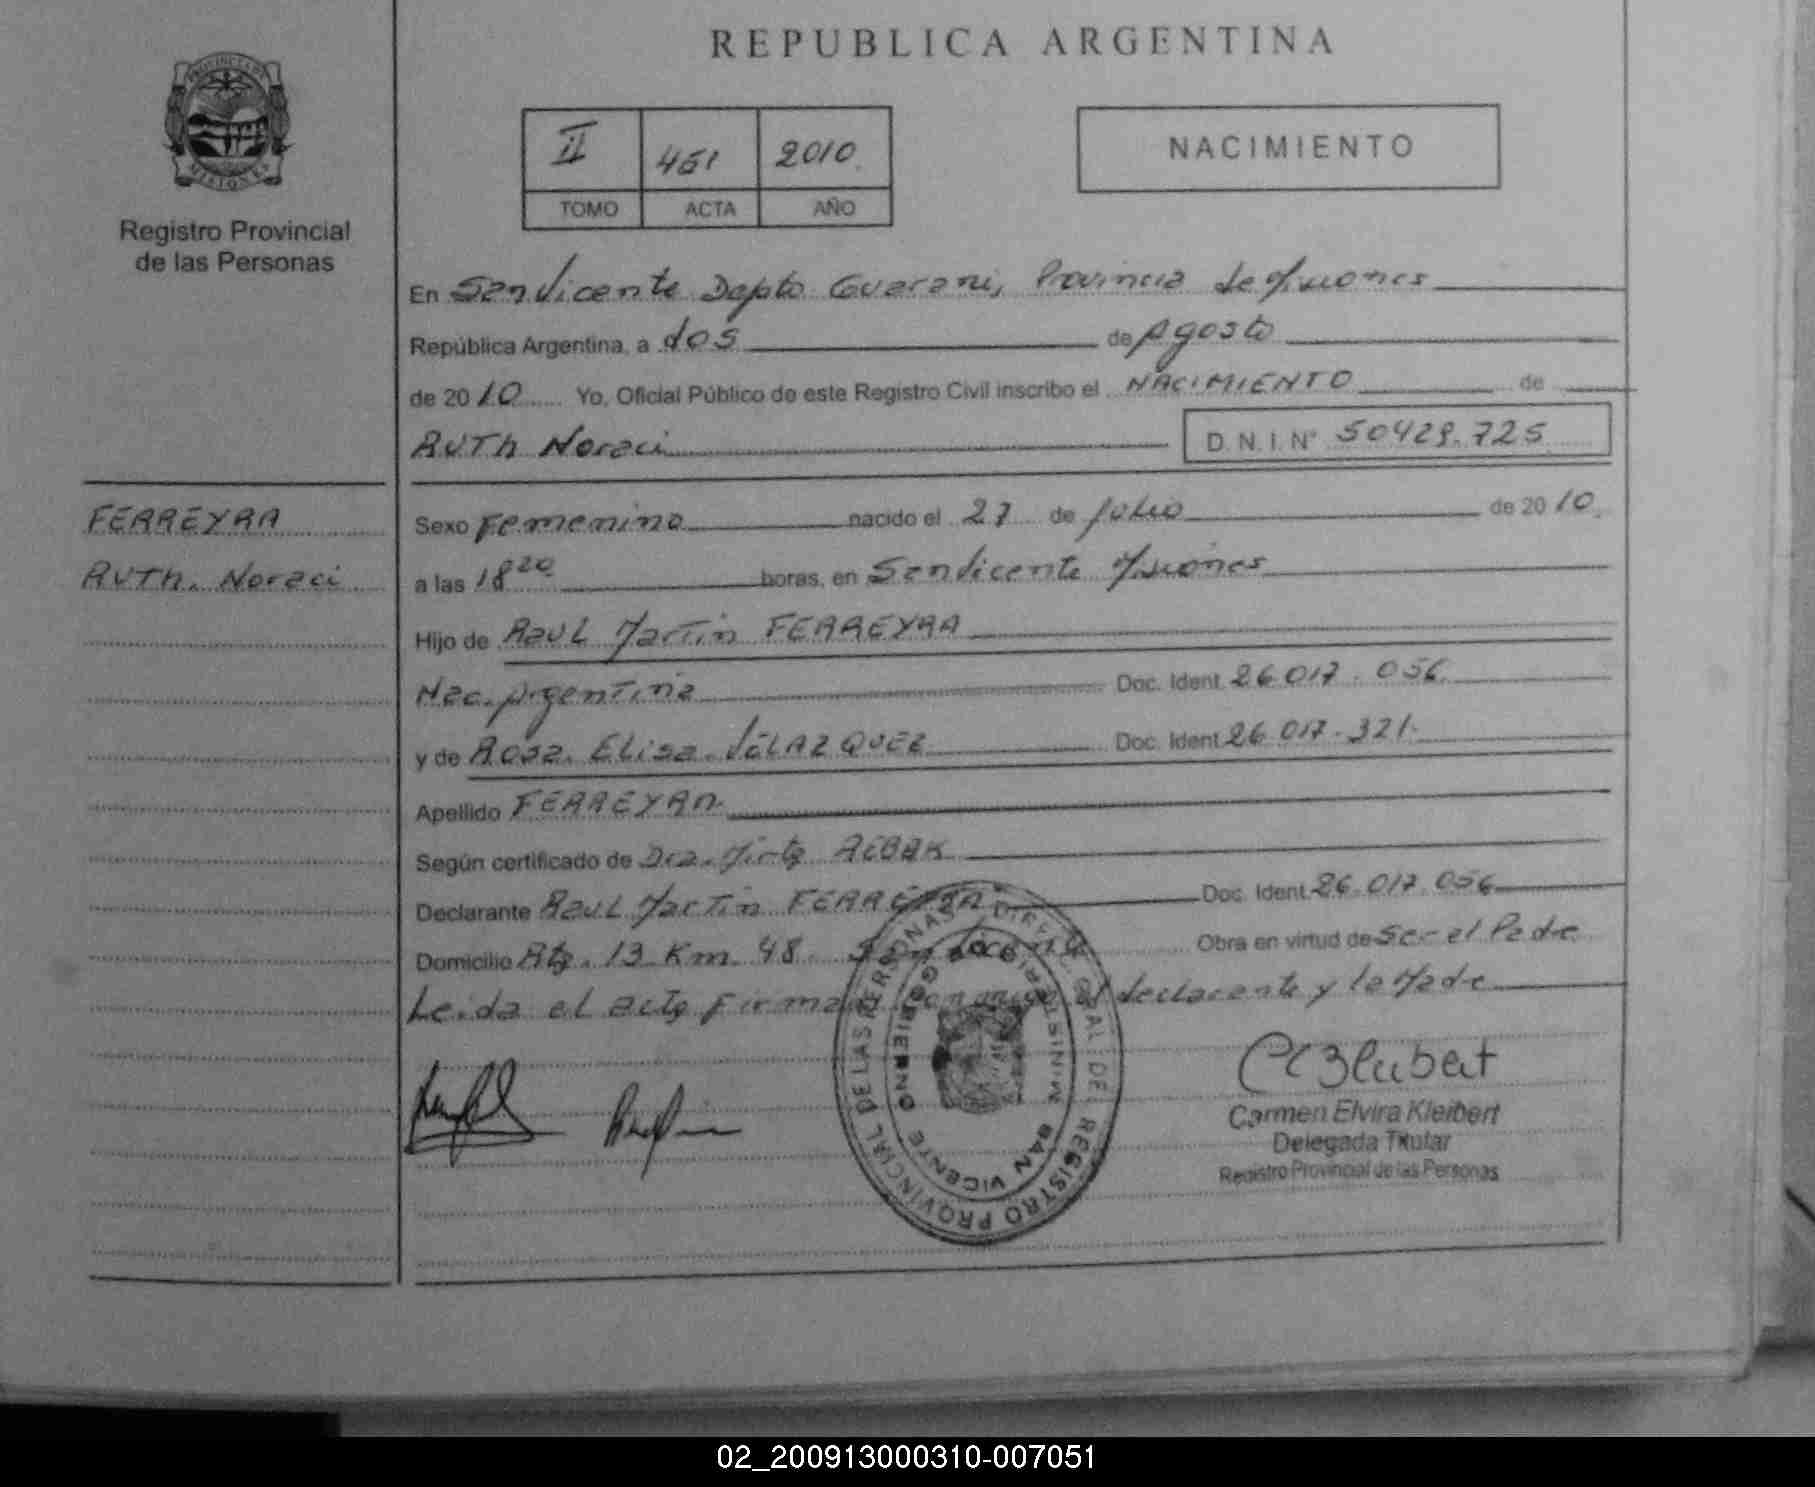 REPUBLICA ARGENTINA
PROVINCIA DE
MISIONES
Registro Provincial
de las Personas
II 461 2010
TOMO ACTA AÑO
NACIMIENTO
En San Vicente Depto Guarani, Provincia de Misiones
República Argentina, a dos de Agosto
de 2010 Yo, Oficial Público de este Registro Civil inscribo el NACIMIENTO de
RUTh Noraci D.N.I. Nº 50429.725
FERREYRA
RUTh. Noraci
Sexo Femenino nacido el 27 de Julio de 2010
a las 18 20 horas, en San Vicente Misiones
Hijo de Raul Martin FERREYRA
Nac. Argentina Doc. Ident. 26 017. 056
y de Rosa. Elisa. VELAZQUEZ Doc. Ident. 26 017. 321.
Apellido FERREYRA
Según certificado de Dra. Mirta
Declarante Raul Martin FERREYRA Doc. Ident. 26.017.056
Domicilio Rta. 13 Km 48. San Vicente Obra en virtud de Ser el Padre
Leida el acta Firman conmigo el declarante y la Madre
DIREC. GRAL. DEL REGISTRO PROVINCIAL DE LAS PERSONAS
MINISTERIO DE GOBIERNO
SAN VICENTE
Carmen Elvira Kleibert
Delegada Titular
Registro Provincial de las Personas
02_200913000310-007051